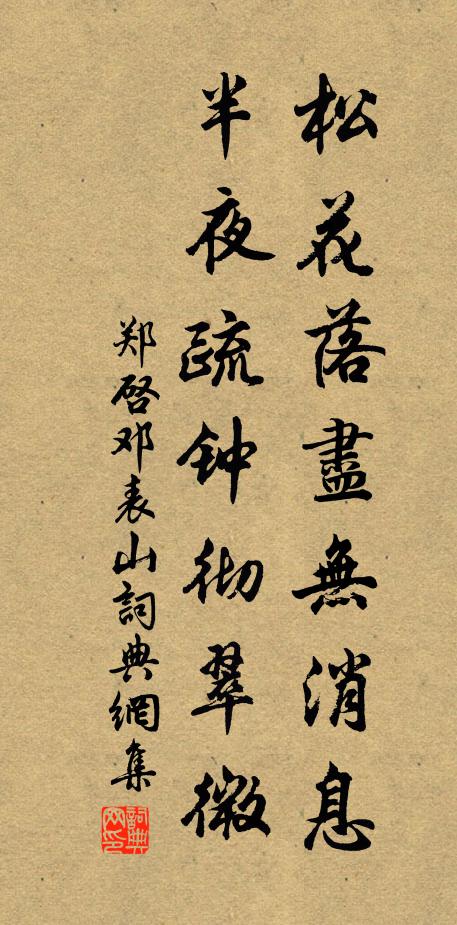 松花落盡無消息
半夜疏钟彻翠微
郑启邓表山詞典網集
詞典网印